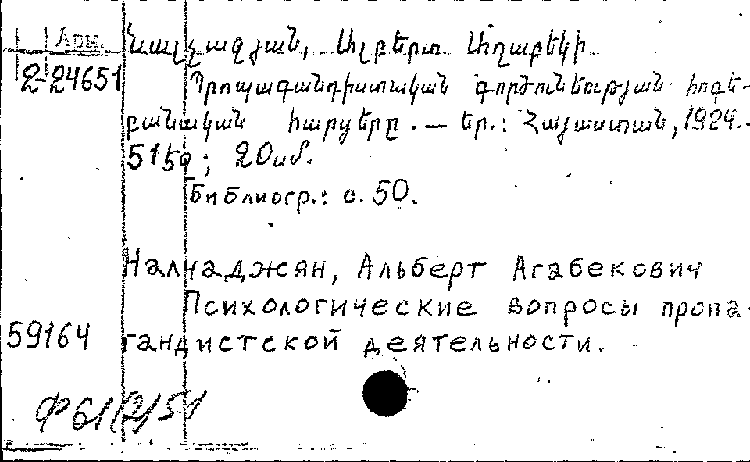 Арм. Նալչաջյան, Ալբերտ Աղաբեկի
2 24651 Պրոպագանդիստական գործունեության հոգե-
բանական հարցերը. — Եր.: Հայաստան, 1984.-
51 էջ; 20սմ.
Библиогр.: с. 50.
Налчаджян, Альберт Агабекович
Психологические вопросы пропа-
59164 гандистской деятельности.
Ф 61(2)51